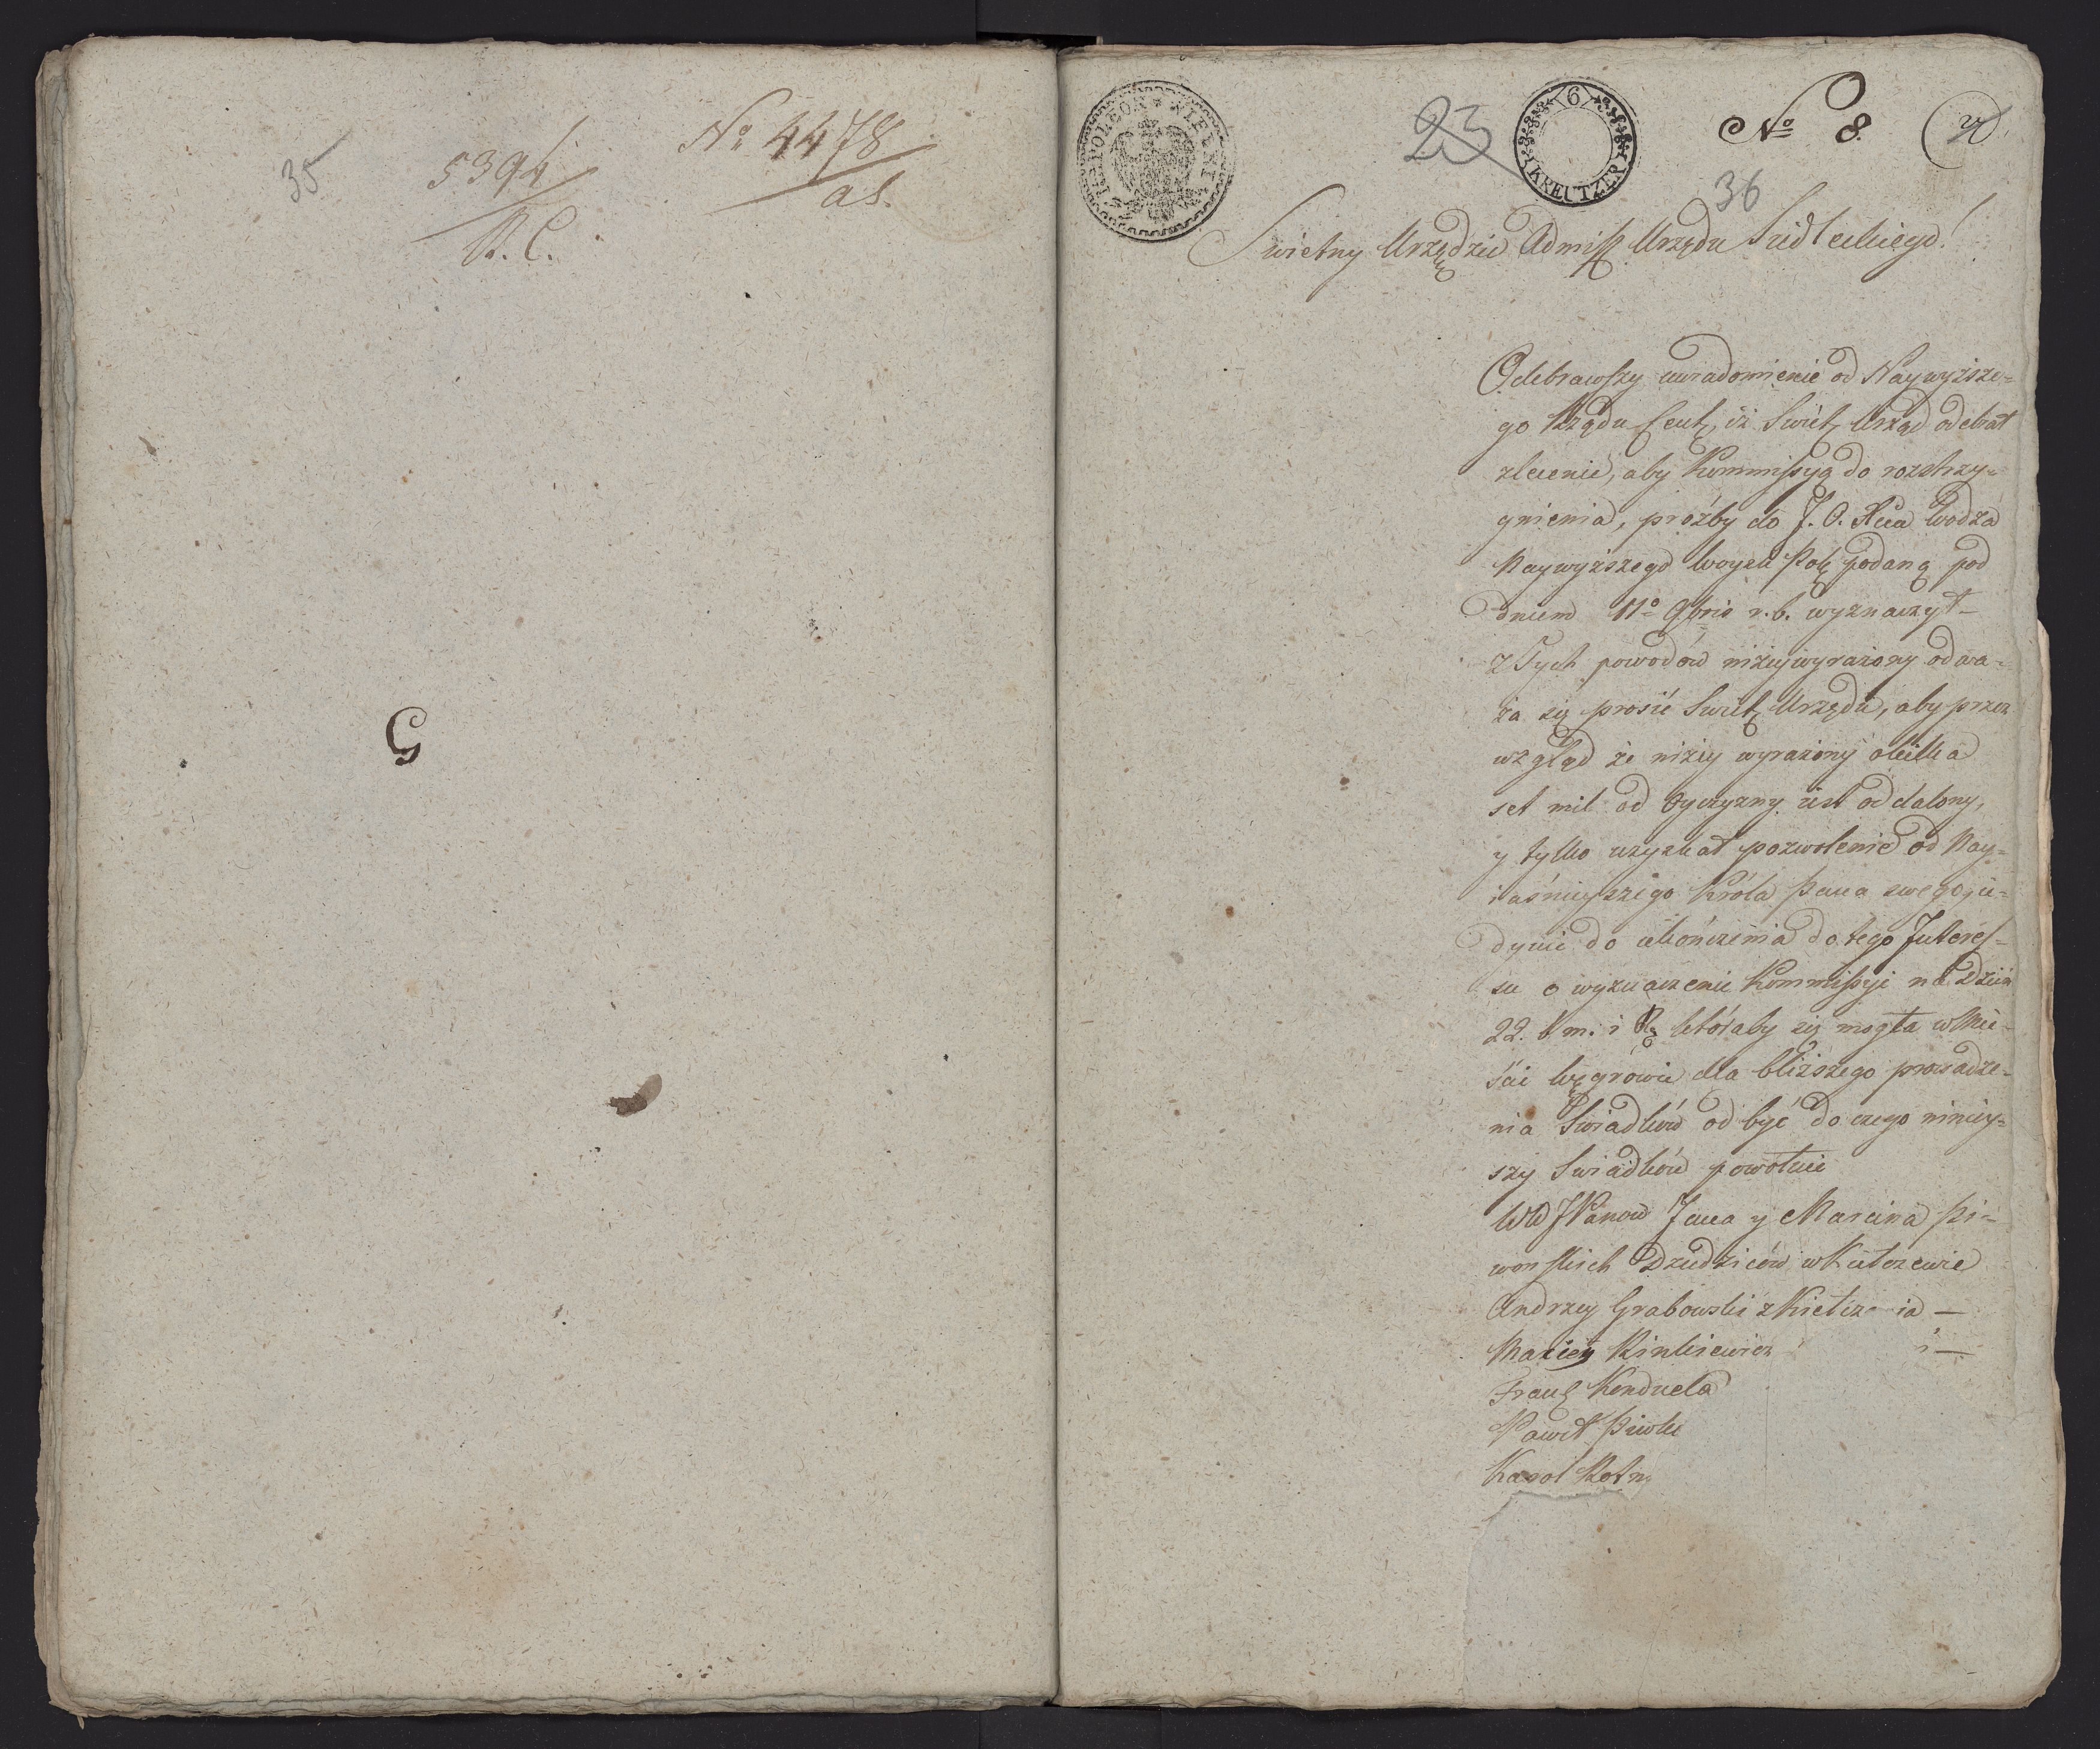 35
5394
A. C.
No 4478
ad.
5
NAPOLEON WIELKI
23
6
KREUTZER
No 8.
36
Swietny Urzędzie Admiss Urzędu Siedleckiego!
Odebrawszy uwiadomienie od Naywyższe=
go Rządu Cent, iż Swiet, Urząd odebrał
zlecenie, aby Kommissyą do rozstrzy=
gnienia, prożby do J. O. Xcia Wodza
Naywyższego Woyska Pol, podaną pod
dniem 11o 9bris r. b. wyznaczył –
z Tych powodów niżeywyrażony odwa=
ża się prosić Swiet, Urzędu, aby przez
wzgląd że niżey wyrażony o kilka
set mil od Oyczyzny iest oddalony,
y tylko uzyskał pozwolenie od Nay=
iaśnieyszego Króla Pana swego je=
dynie do ukończenia do tego Interes=
su o wyznaczenie Kommissyi na Dzień
22. b m. i R, któraby się mogła w Mie=
ście Węgrowie dla bliższego prowadze=
nia Swiadków odbyć do czego niniey=
szy Swiadków powołuie
WW JPanów Jana y Marcina Pi=
wonskich Dziedziców w Kutczewie
Andrzey Grabowski z –
Maciey Rinkiewicz
Franc, Kenduela
Paweł Piwko
Karol